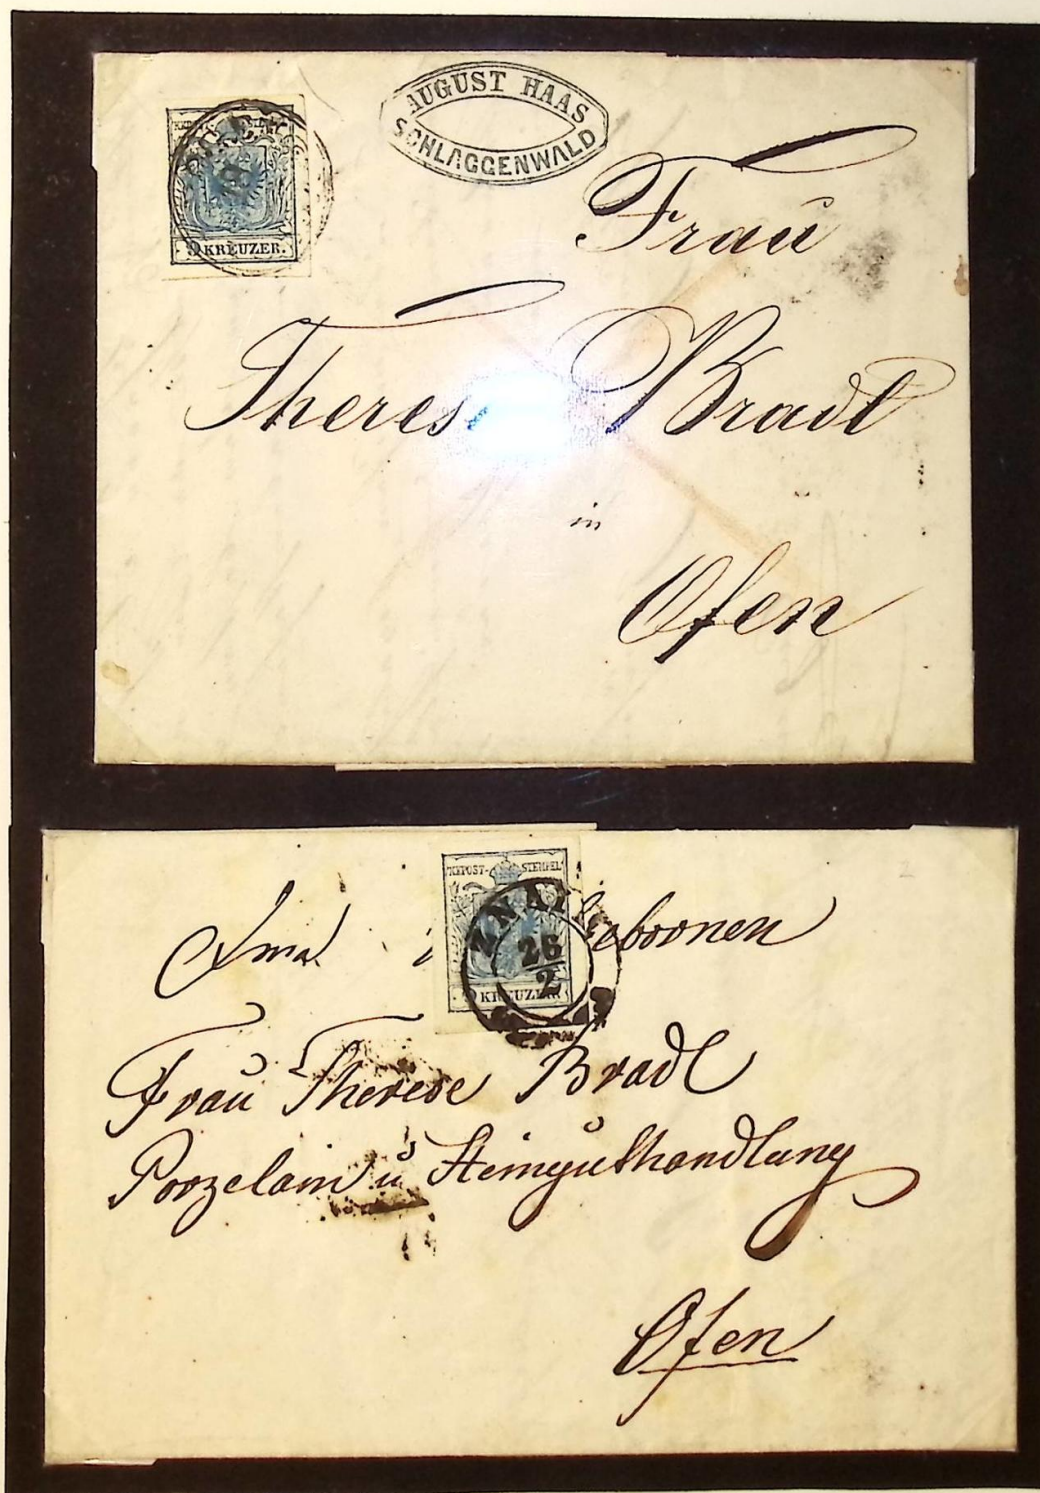 AUGUST HAAS
SCHLAGGENWALD
9 KREUZER.
Frau
Theres Bradl
in
Ofen
KKPOST- STEMPEL
ZNAI
26
2
9 KREUZER
Frau Therese Bradl
Porzelain u Steinguthandlung
Ofen